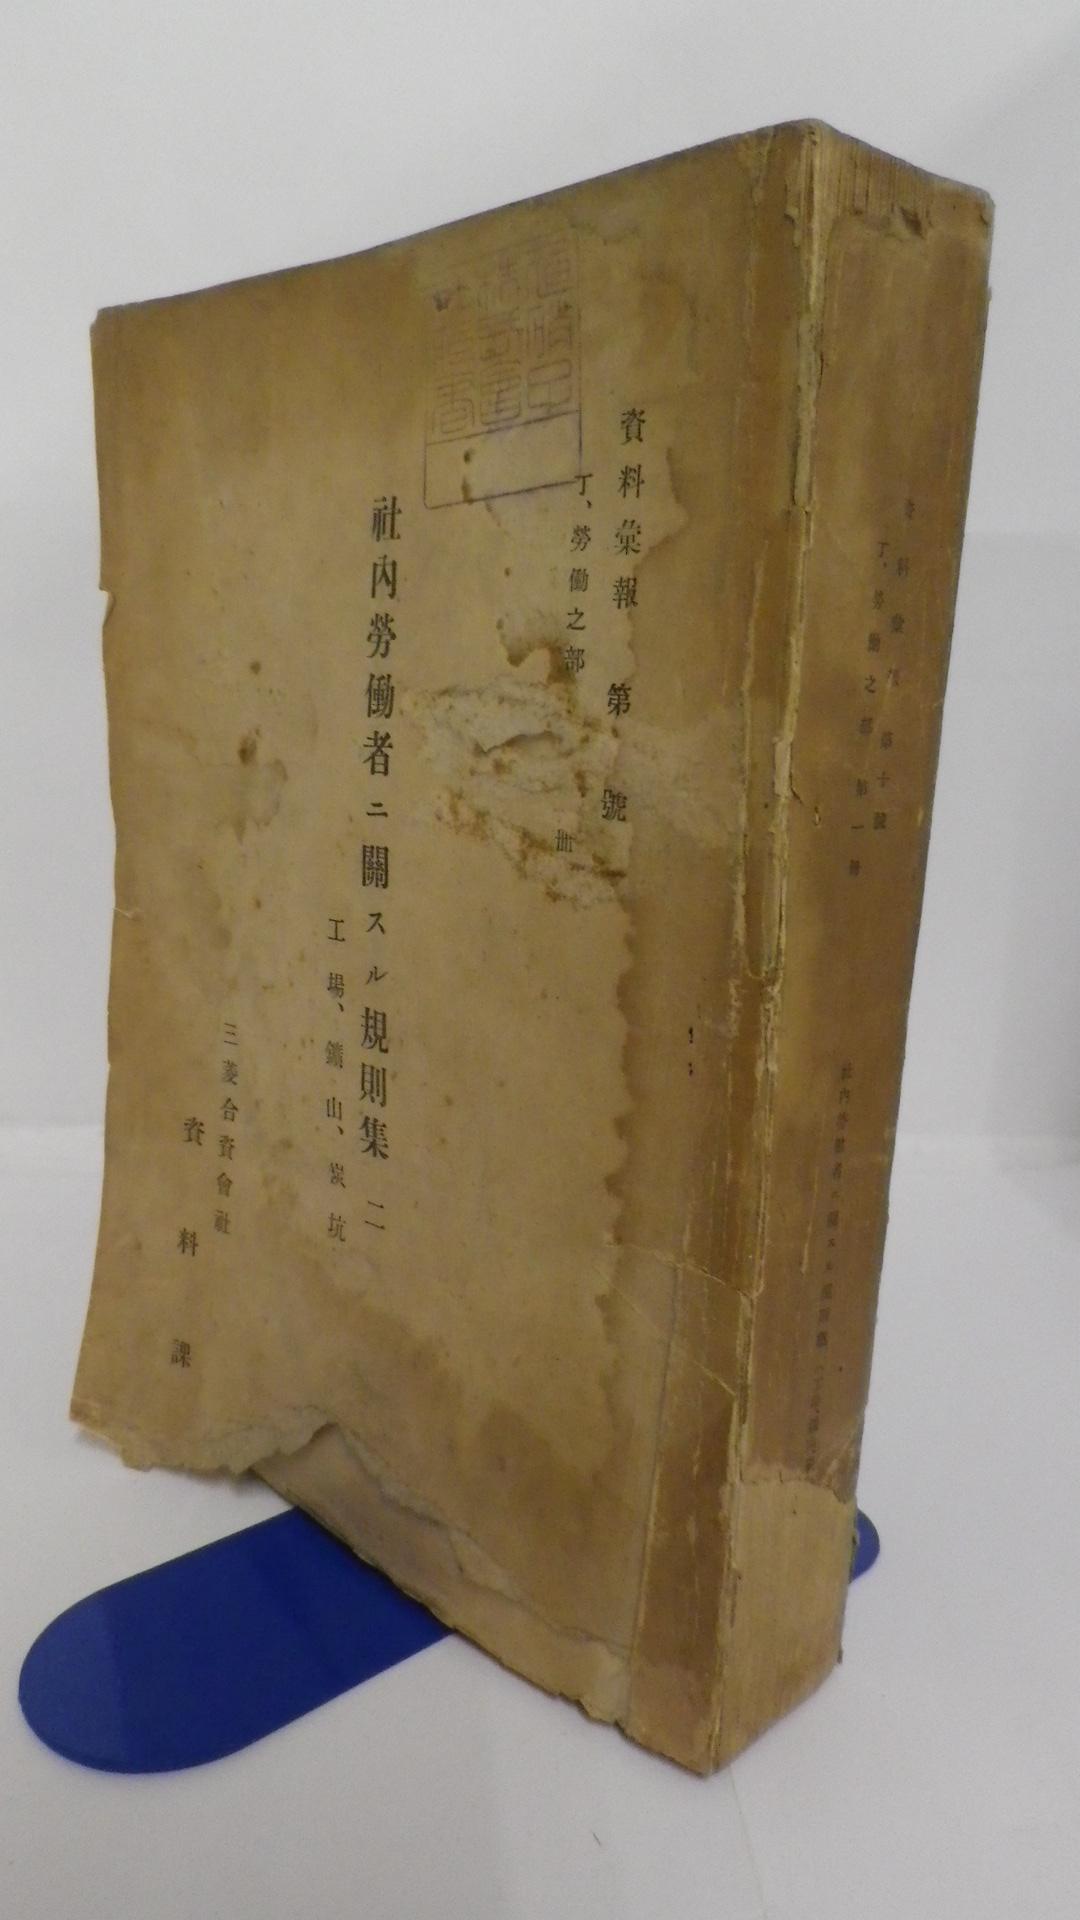 資料彙報 第 號
丁、勞働之部 冊
社內勞働者ニ關スル規則集 二
工場、鑛山、炭坑
三菱合資會社
資料課
資料彙報 第十號
丁、勞働之部 第一冊
社內勞働者ニ關スル規則集